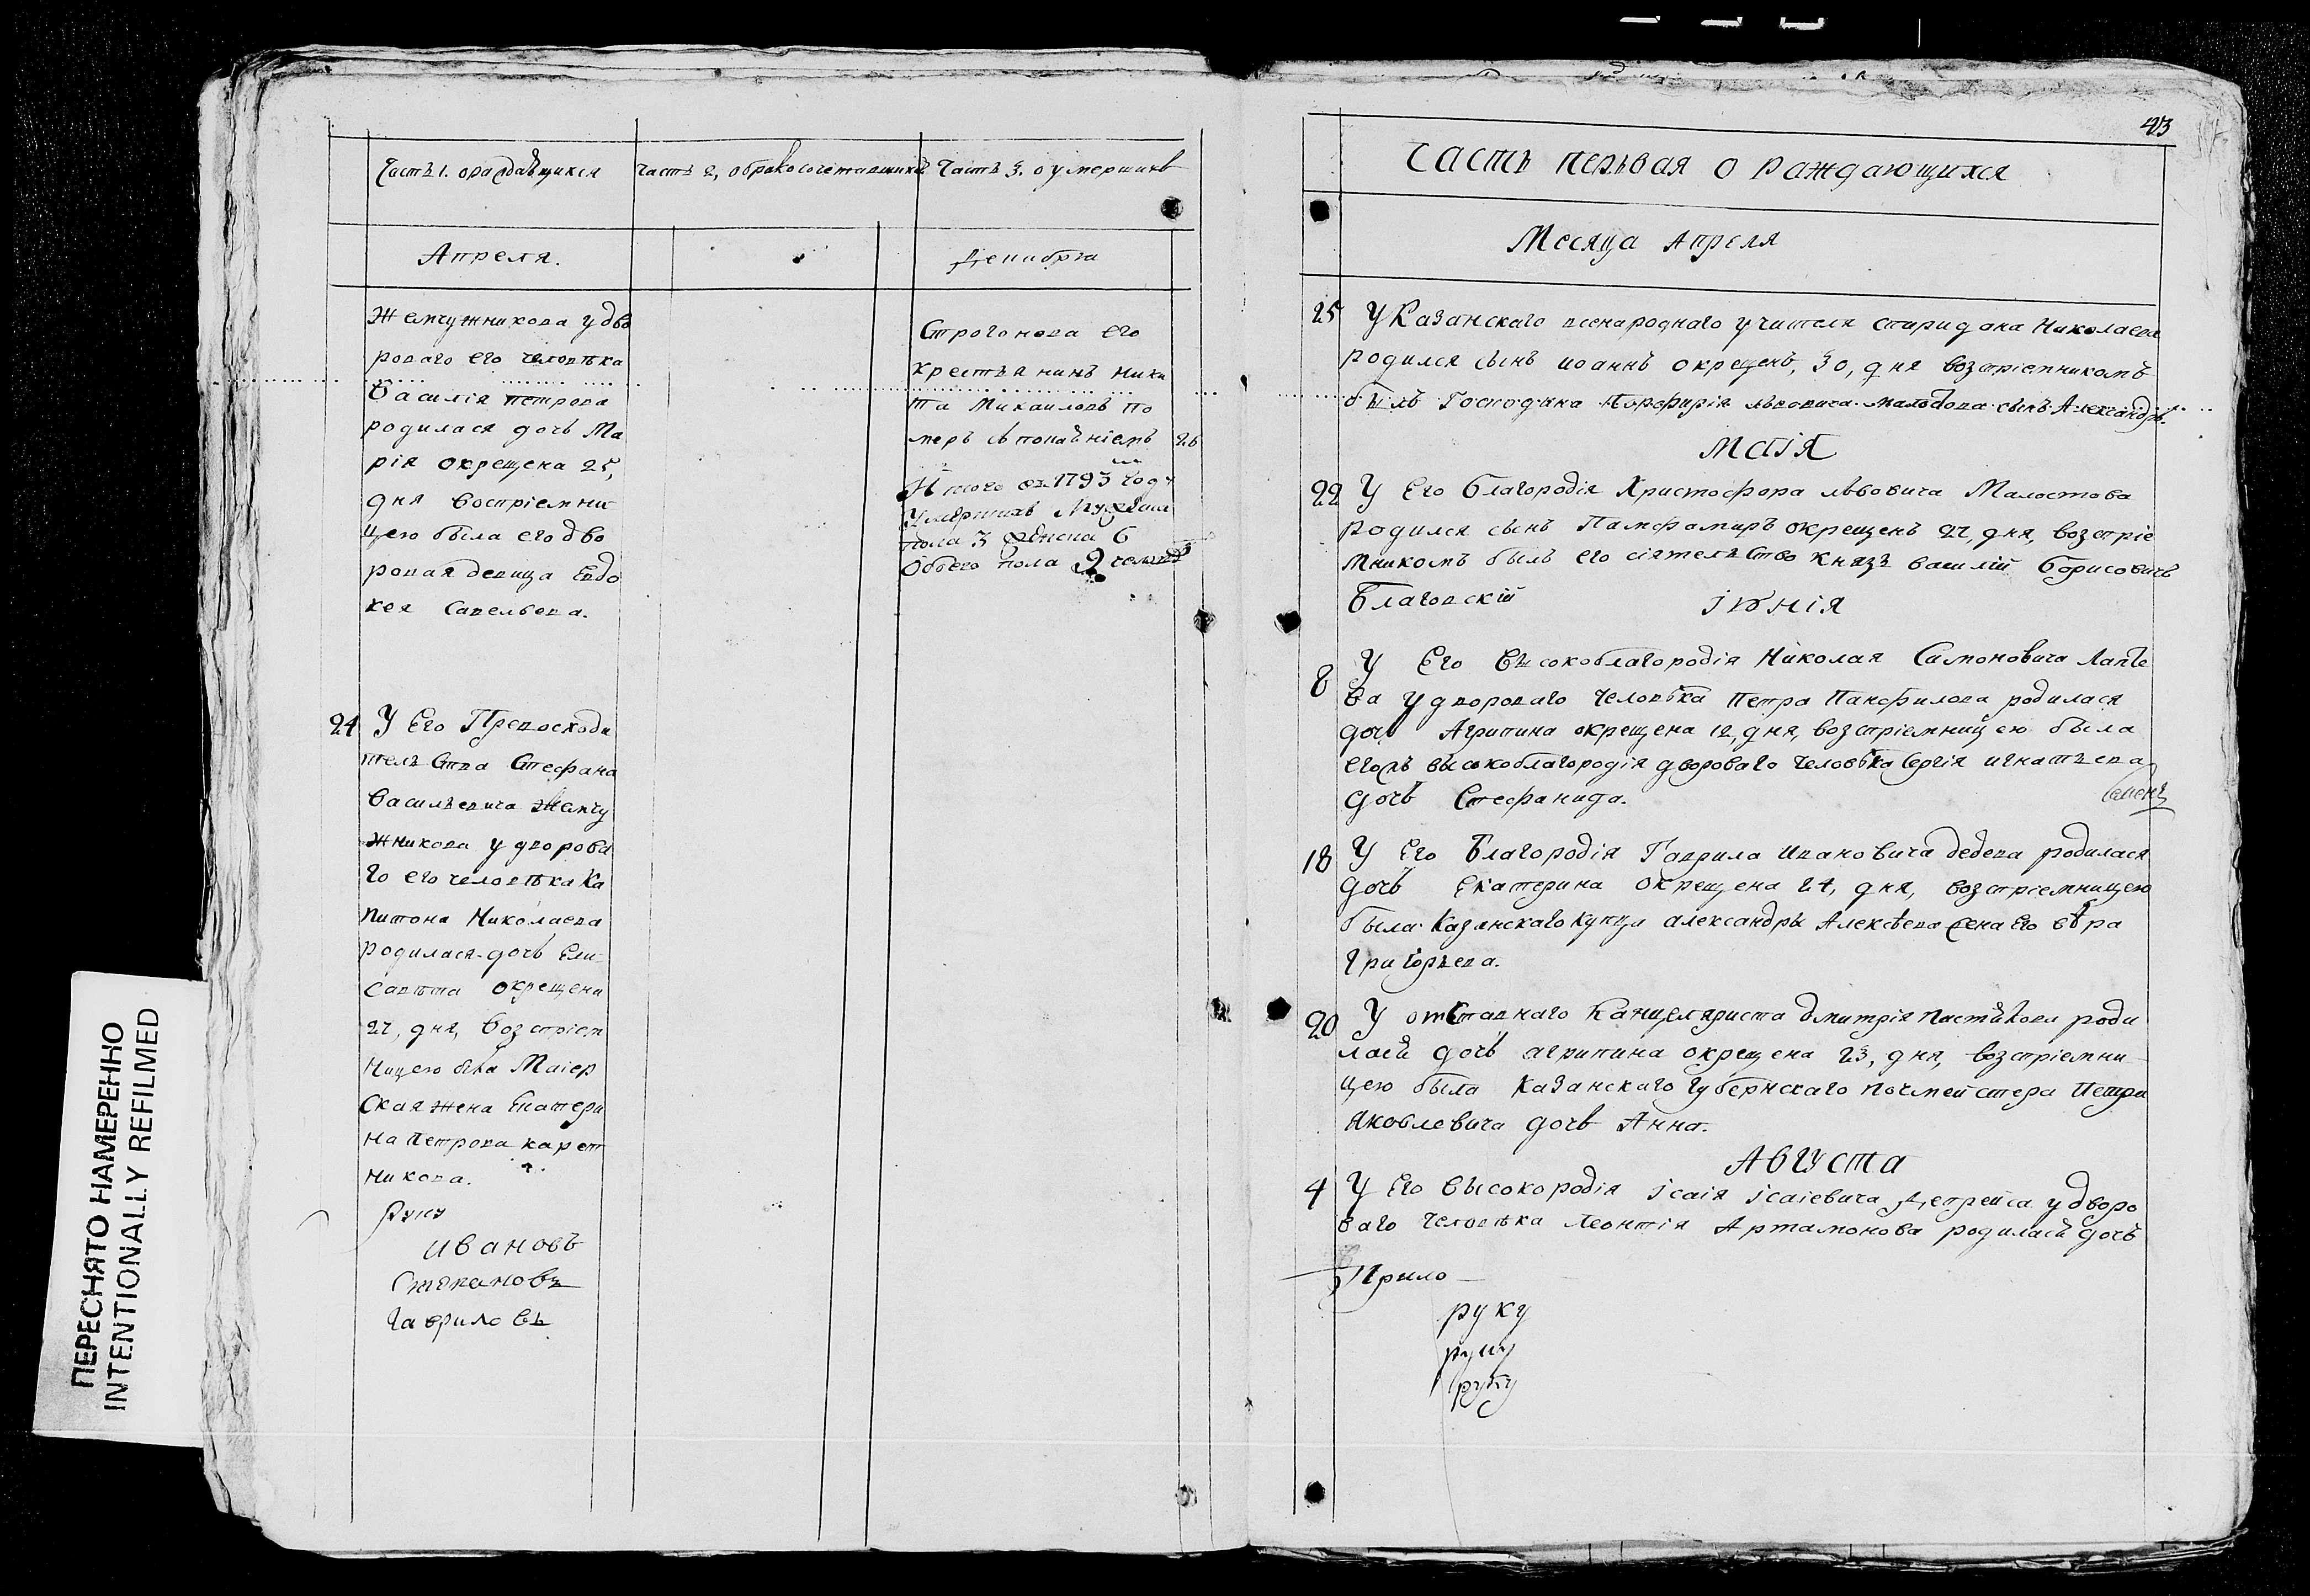 Часть 1. о раждающихся
Часть 2, о бракосочетавшихся
Часть 3. о умерших
Апреля.
Жемчужникова у дво
роваго его человѣка
Василія Петрова
родилася дочь Ма
рія окрещена 25,
дня воспріемни
цею была его дво
ровая девица Евдо
кея Савельева.
24 У Его Превосходи
тельства Стефана
Васильевича Жемчу
жникова у дворова
го его человѣка Ка
питона Николаева
родилася дочь Ели
савѣта окрещена
27, дня, возпріем
ницею была Маіер
ская жена Екатери
на Петрова карет
никова.
руку
Ивановъ
Степановъ
Гавриловъ
Декабря
Строгонова его
крестьянинъ Ники
та Михаиловъ по
меръ съ покаяніемъ 26
Итого въ 1793 году
Умершихъ Мужеска
пола 3 женска 6
Обоего пола 9 человѣкъ
43
Часть первая о раждающихся
Месяца Апреля
25 У Казанскаго всенароднаго учителя Спиридона Николаева
родился сынъ Иоаннъ окрещенъ, 30, дня возпріемникомъ
былъ Господина Порфирія Львовича сынъ Александръ.
Маія
22 У Его Благородія Христофора Львовича Молостова
родился сынъ окрещенъ 27, дня, возпріе
мникомъ былъ его сіятельство Князь Василій Борисовичъ
Іюнія
8 У Его Высокоблагородія Николая Симоновича Лапте
ва у двороваго человѣка Петра Панфилова родилася
дочь Агрипина окрещена 12, дня, возпріемницею была
его высокоблагородія двороваго человѣка Сергія Игнатьева
дочь Стефанида.
18 У Его Благородія Гаврила Ивановича Дедева родилася
дочь Екатерина окрещена 24, дня, возпріемницею
была Казанскаго купца Александры Алексѣева жена его
Григорьева.
20 У отставнаго Канцеляриста Дмитрія роди
лась дочь Агрипина окрещена 23, дня, возпріемни
цею была Казанскаго Губернскаго почмейстера Петра
Яковлевича дочь Анна.
Августа
4 У Его Высокородія Ісаія Ісаіевича Депрейса у дворо
ваго человѣка Леонтія Артамонова родилась дочь
Прило
руку
руку
руку
ПЕРЕСНЯТО НАМЕРЕННО
INTENTIONALLY REFILMED